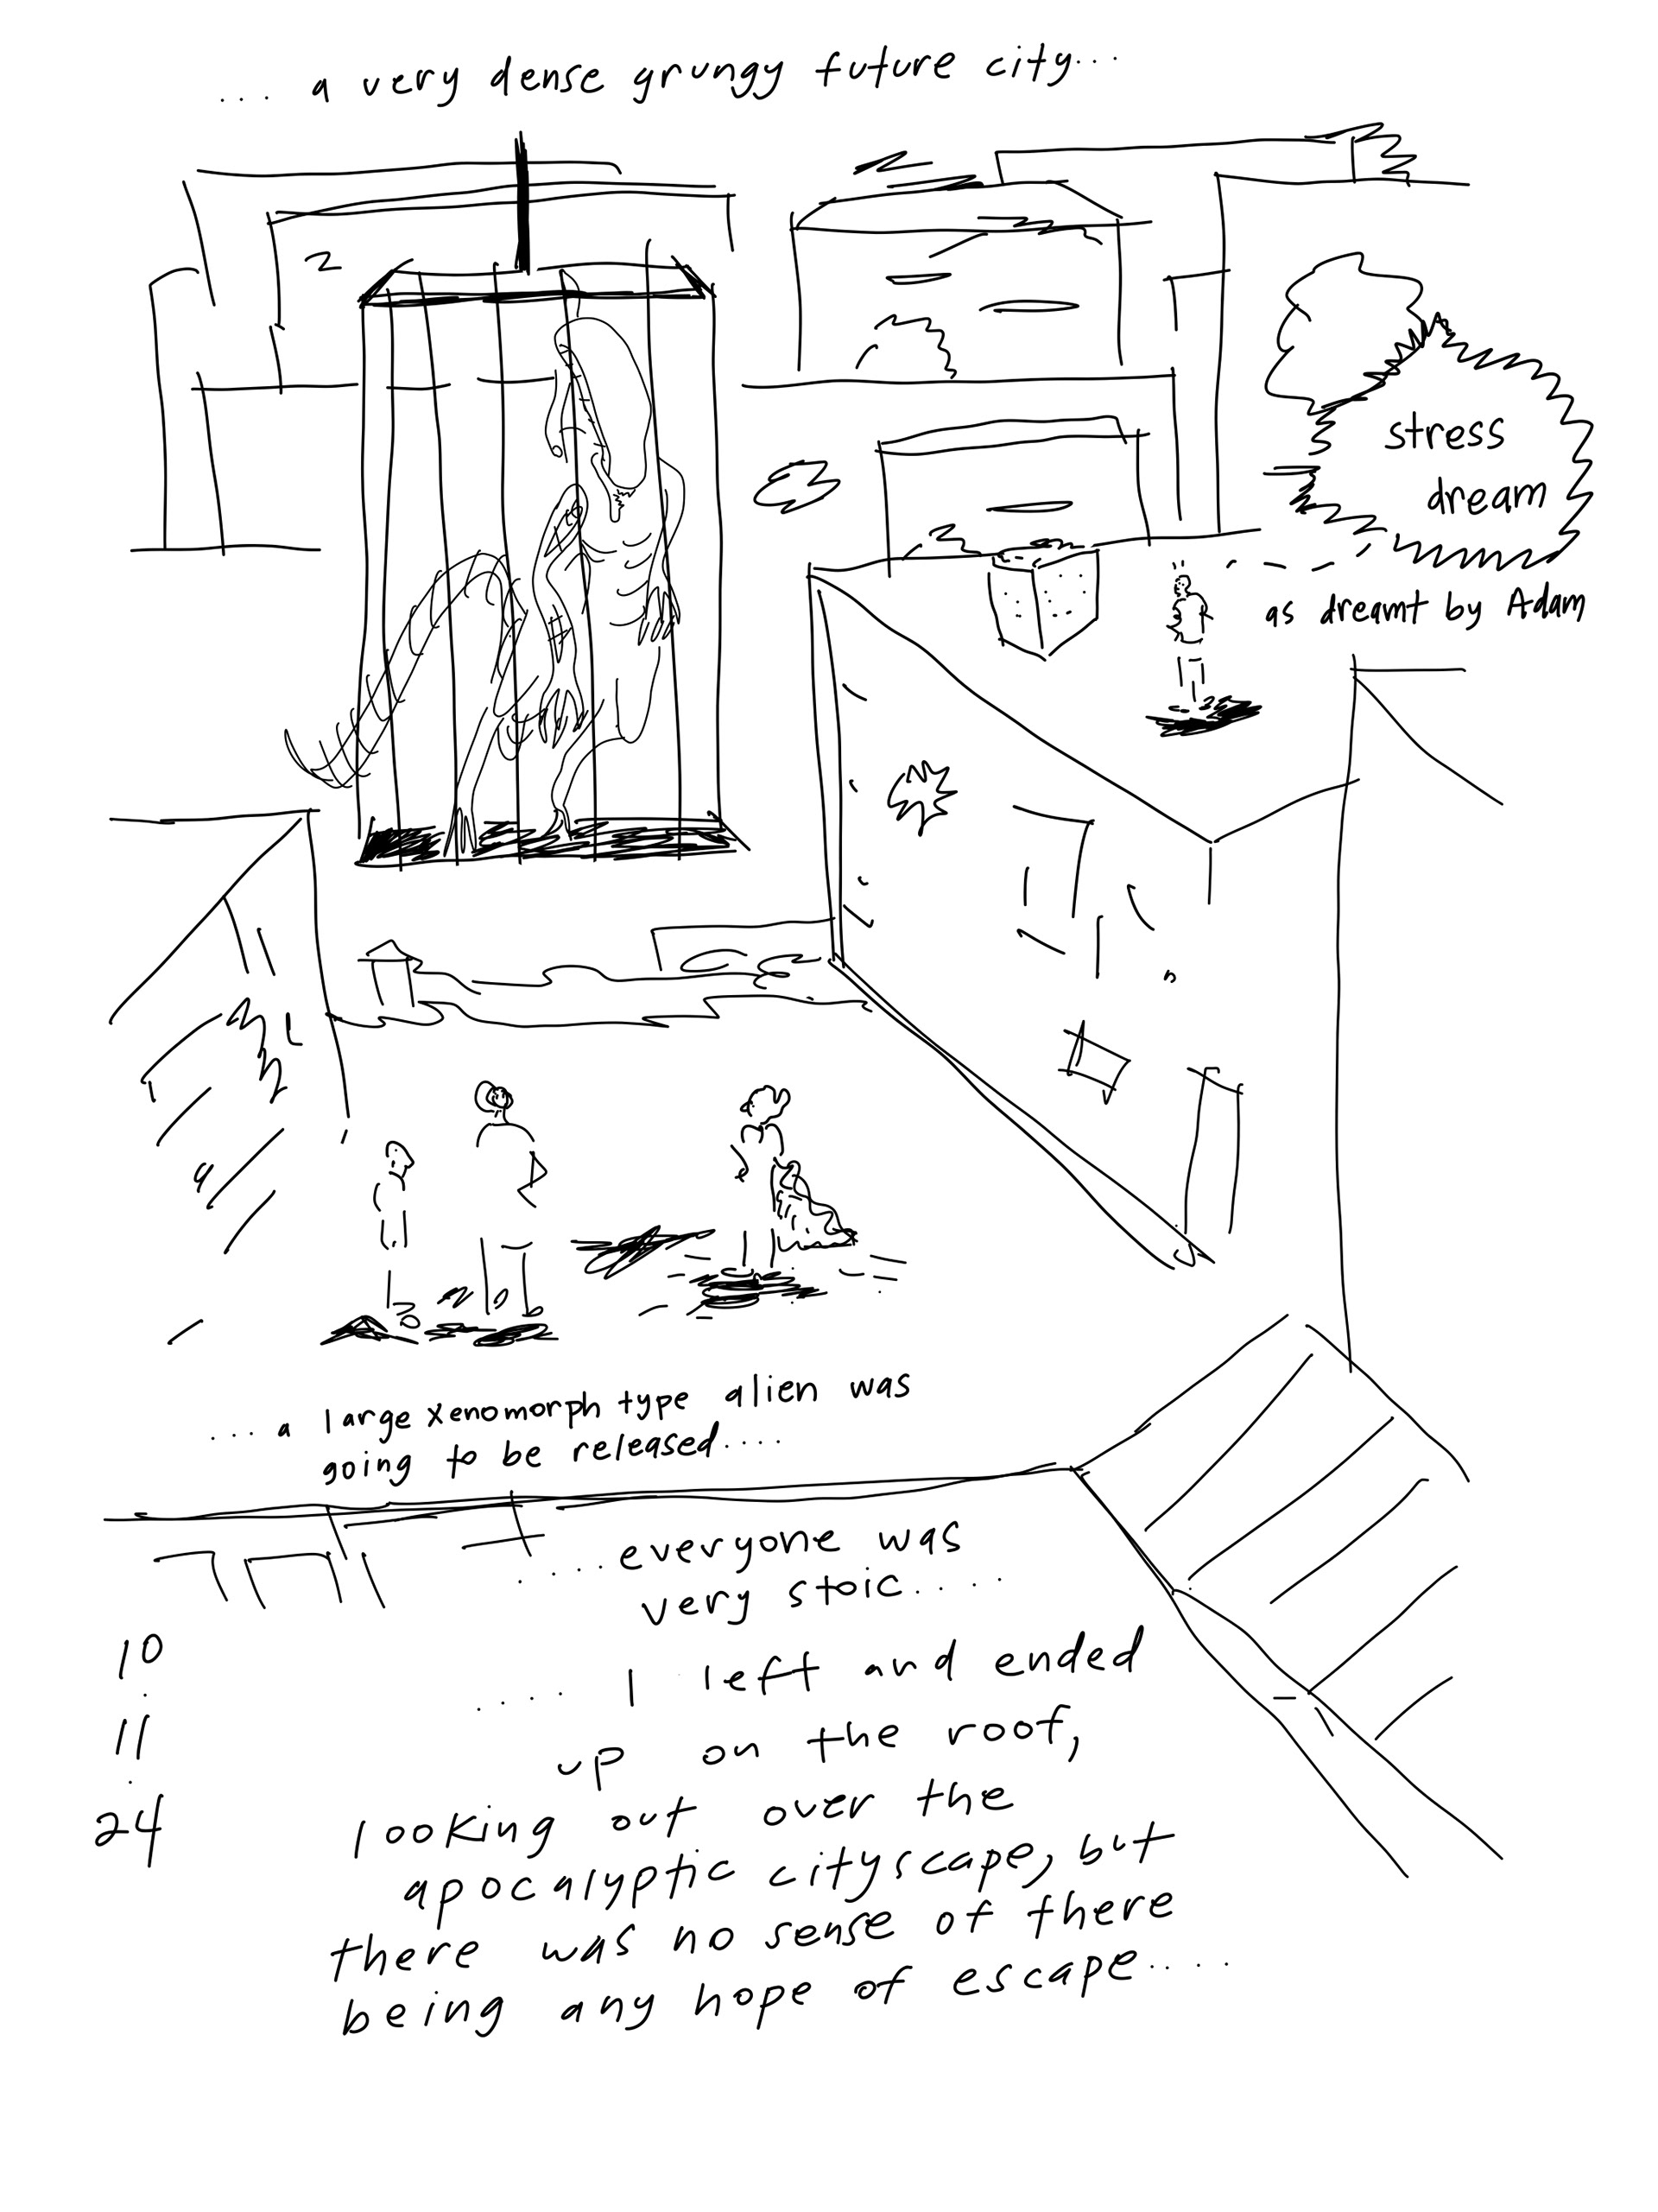 .... a very dense grungy future city...
stress
dream
as dreamt by Adam
.... a large xenomorph type alien was
going to be released....
.....everyone was
very stoic.....
.... I left and ended
up on the roof,
looking out over the
apocalyptic cityscape, but
there was no sense of there
being any hope of escape....
10
.
11
.
24